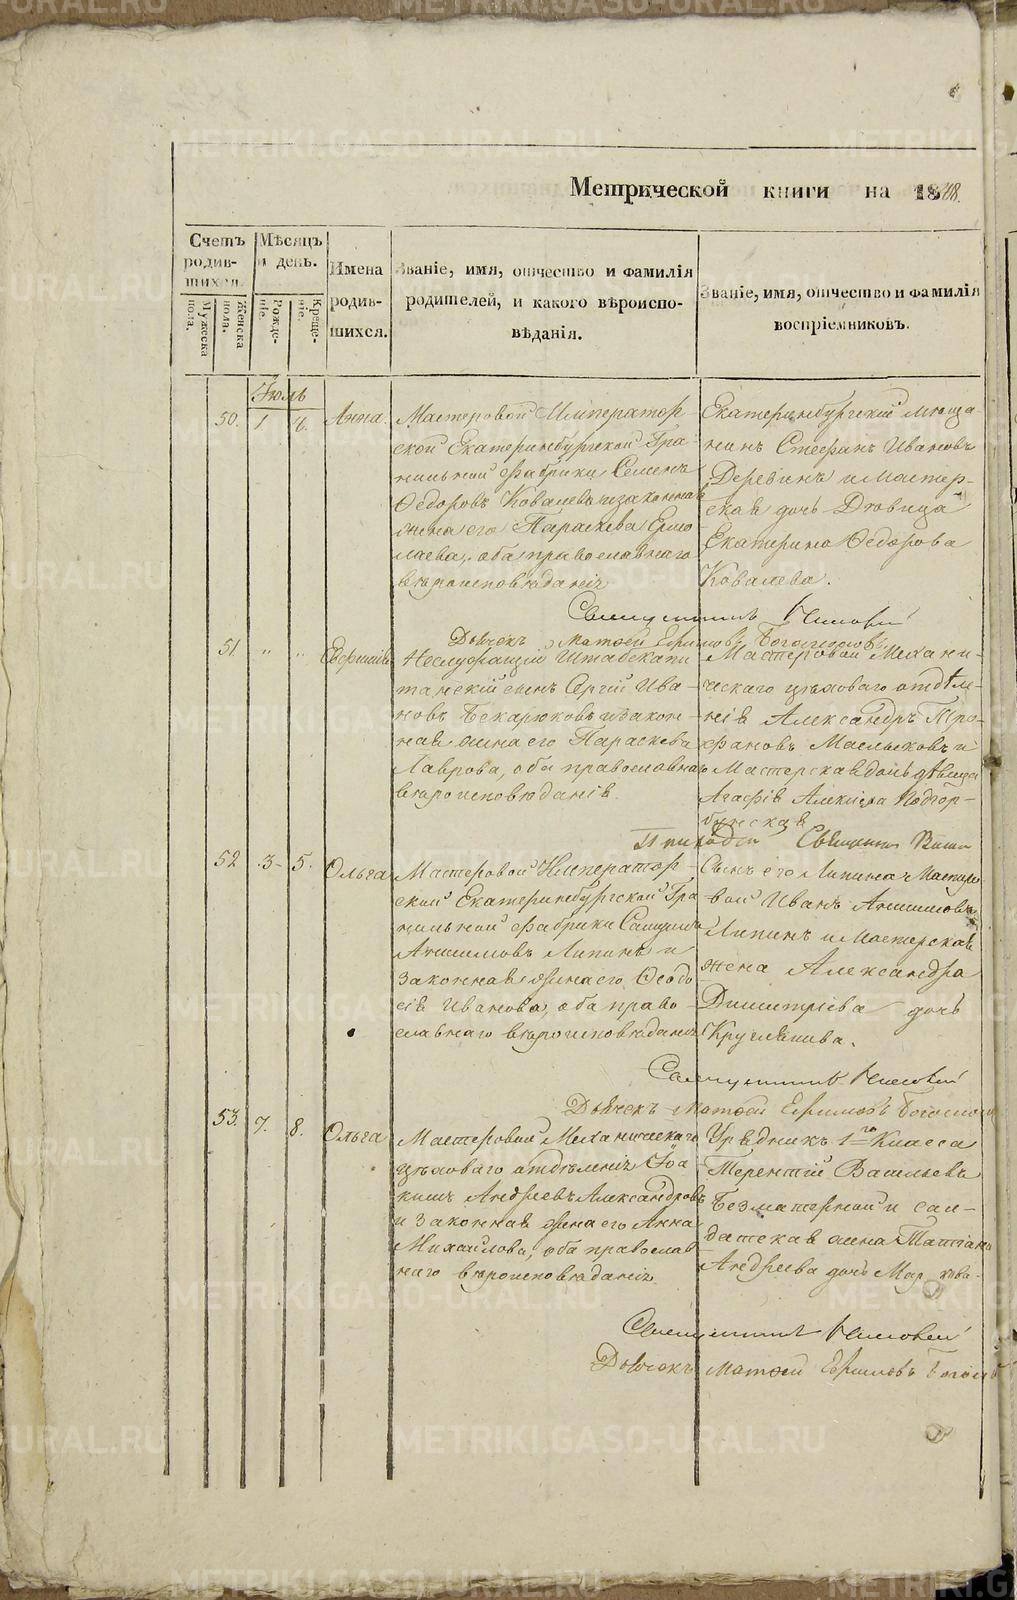 Метрической книги на 1848.
Счетъ родив-шихся.
Мужеска пола.
Женска пола.
Мѣсяцъ и день.
Рожде-ніе.
Креще-ніе.
Имена родив-шихся.
Званіе, имя, отчество и фамилія
родителей, и какого вѣроиспо-
вѣданія.
Званіе, имя, отчество и фамилія
воспріемниковъ.
Іюль
50. 1 6. Анна.
Мастеровой Император-
ской Екатеринбургской Гра-
нильной фабрики Семенъ
Ѳедоровъ Ковалевъ и законная
жена его Параскева Ермо-
лаева, оба православнаго
вѣроисповѣданія
Екатеринбургскій мѣща-
нинъ Стефанъ Ивановъ
Деревинъ и мастер-
ская дочь Дѣвица
Екатерина Ѳедорова
Ковалева.
Священникъ
Дьячекъ Матѳей Ефимовъ Богословъ
51. " " Евфимія
Неслужащій Штабскапи-
танскій сынъ Сергій Ива-
новъ Бекарюковъ и закон-
ная жена его Параскева
Лаврова, оба православнаго
вѣроисповѣданія.
Мастеровой Механи-
ческаго цѣховаго отдѣле-
нія Александръ Тро-
фановъ Маслыковъ и
Мастерская дочь дѣвица
Агафія Алексѣева Подкор-
бунская
52. 3 5. Ольга
Мастеровой Император-
ской Екатеринбургской Гра-
нильной фабрики
Анисимовъ Липинъ и
законная жена его Ѳеодо-
сія Иванова, оба право-
славнаго вѣроисповѣданія
Сынъ его Липина Мастеро-
вой Иванъ Анисимовъ
Липинъ и Мастерская
жена Александра
Димитріева дочь
Круглѣшева.
Священникъ
Дьячекъ Матѳей Ефимовъ Богослов
53. 7. 8. Ольга
Мастеровой Механическаго
цѣховаго отдѣленія Іоа-
кимъ Андреевъ Александровъ
и законная жена его Анна
Михайлова, оба православ-
наго вѣроисповѣданія.
Урядникъ 1го Класса
Терентій Васильевъ
Безматерной и сол-
датская жена Татіана
Андреева дочь
Священникъ
Дьячекъ Матѳей Ефимовъ Богослов
METRIKI.GASO-URAL.RU